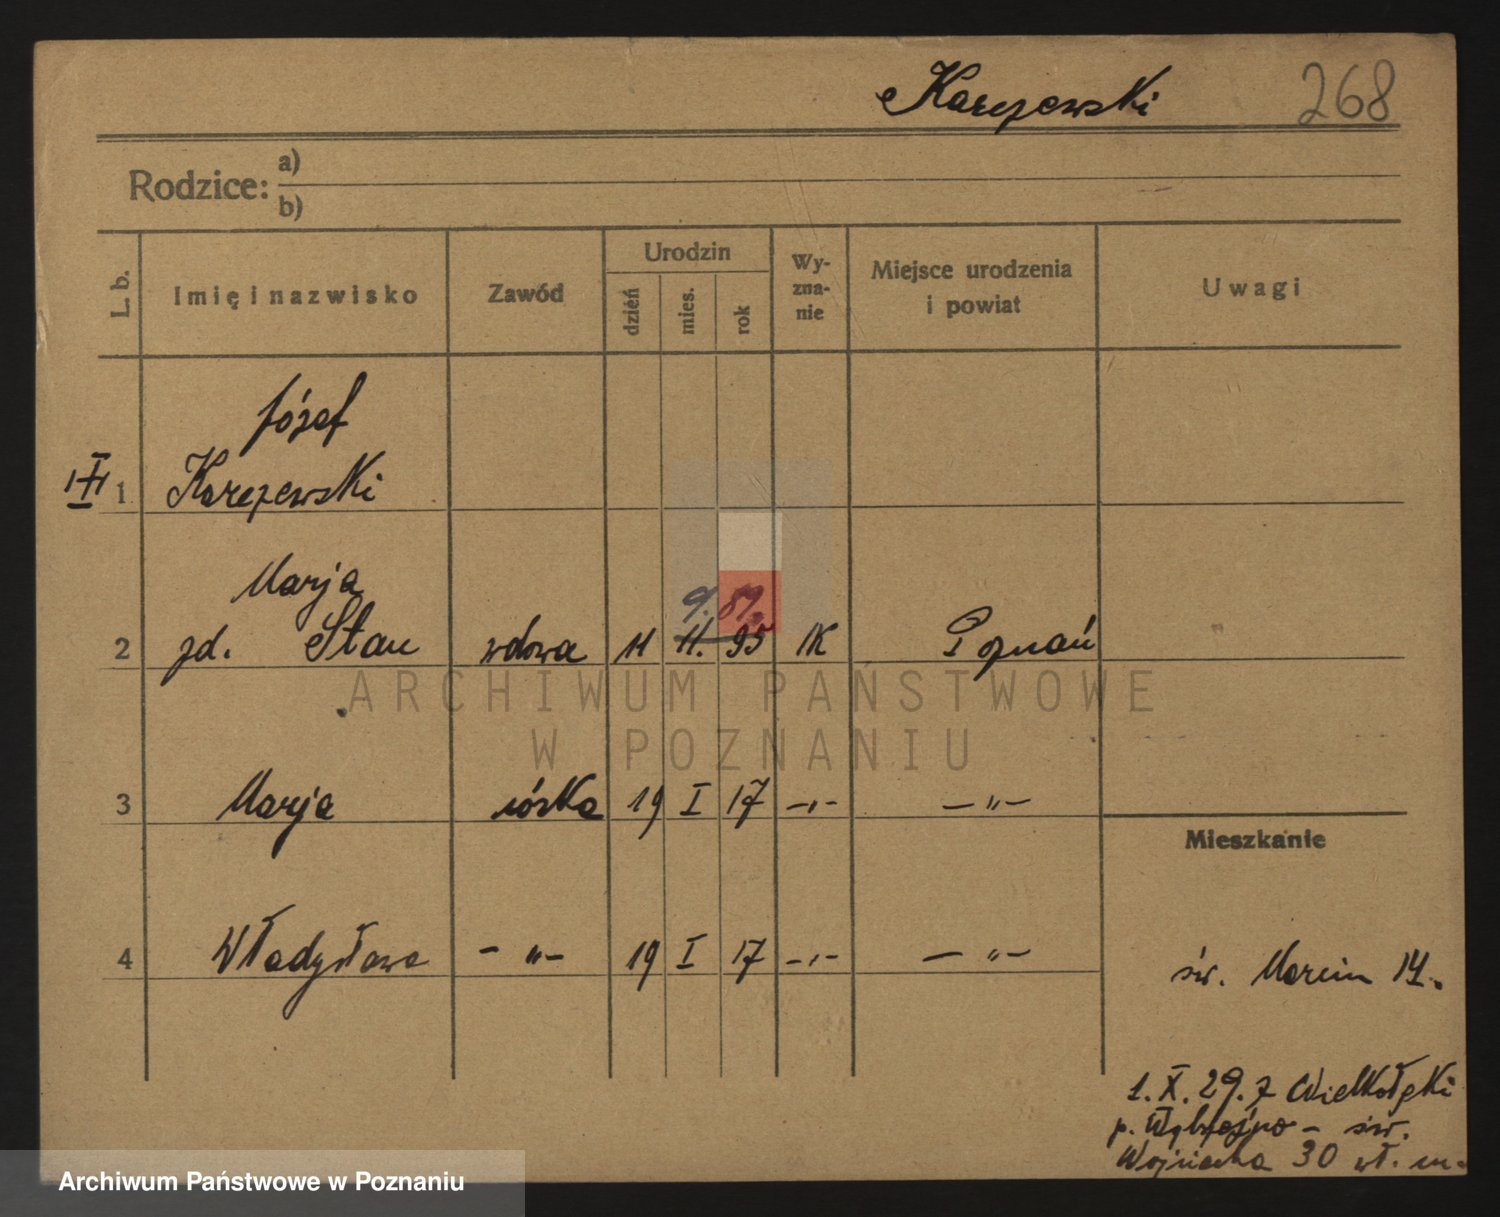 Karczewski 268
Rodzice: a)
b)
L. b. Imię i nazwisko Zawód Urodzin dzień mies. rok Wy-zna-nie Miejsce urodzenia i powiat Uwagi
Józef
1 Karczewski
Marja 9. 89.
2 zd. Stau wdowa 11 11. 95 rK Poznań
ARCHIWUM PAŃSTWOWE
W POZNANIU
3 Marja córka 19 I 17 -"- -"-
Mieszkanie
4 Władysława -"- 19 I 17 -"- -"-
św. Marcin 14.
1. X. 29. z Wielkołęki
p. Wąbrzeźno - św.
Wojciecha 30 wł. m.
Archiwum Państwowe w Poznaniu